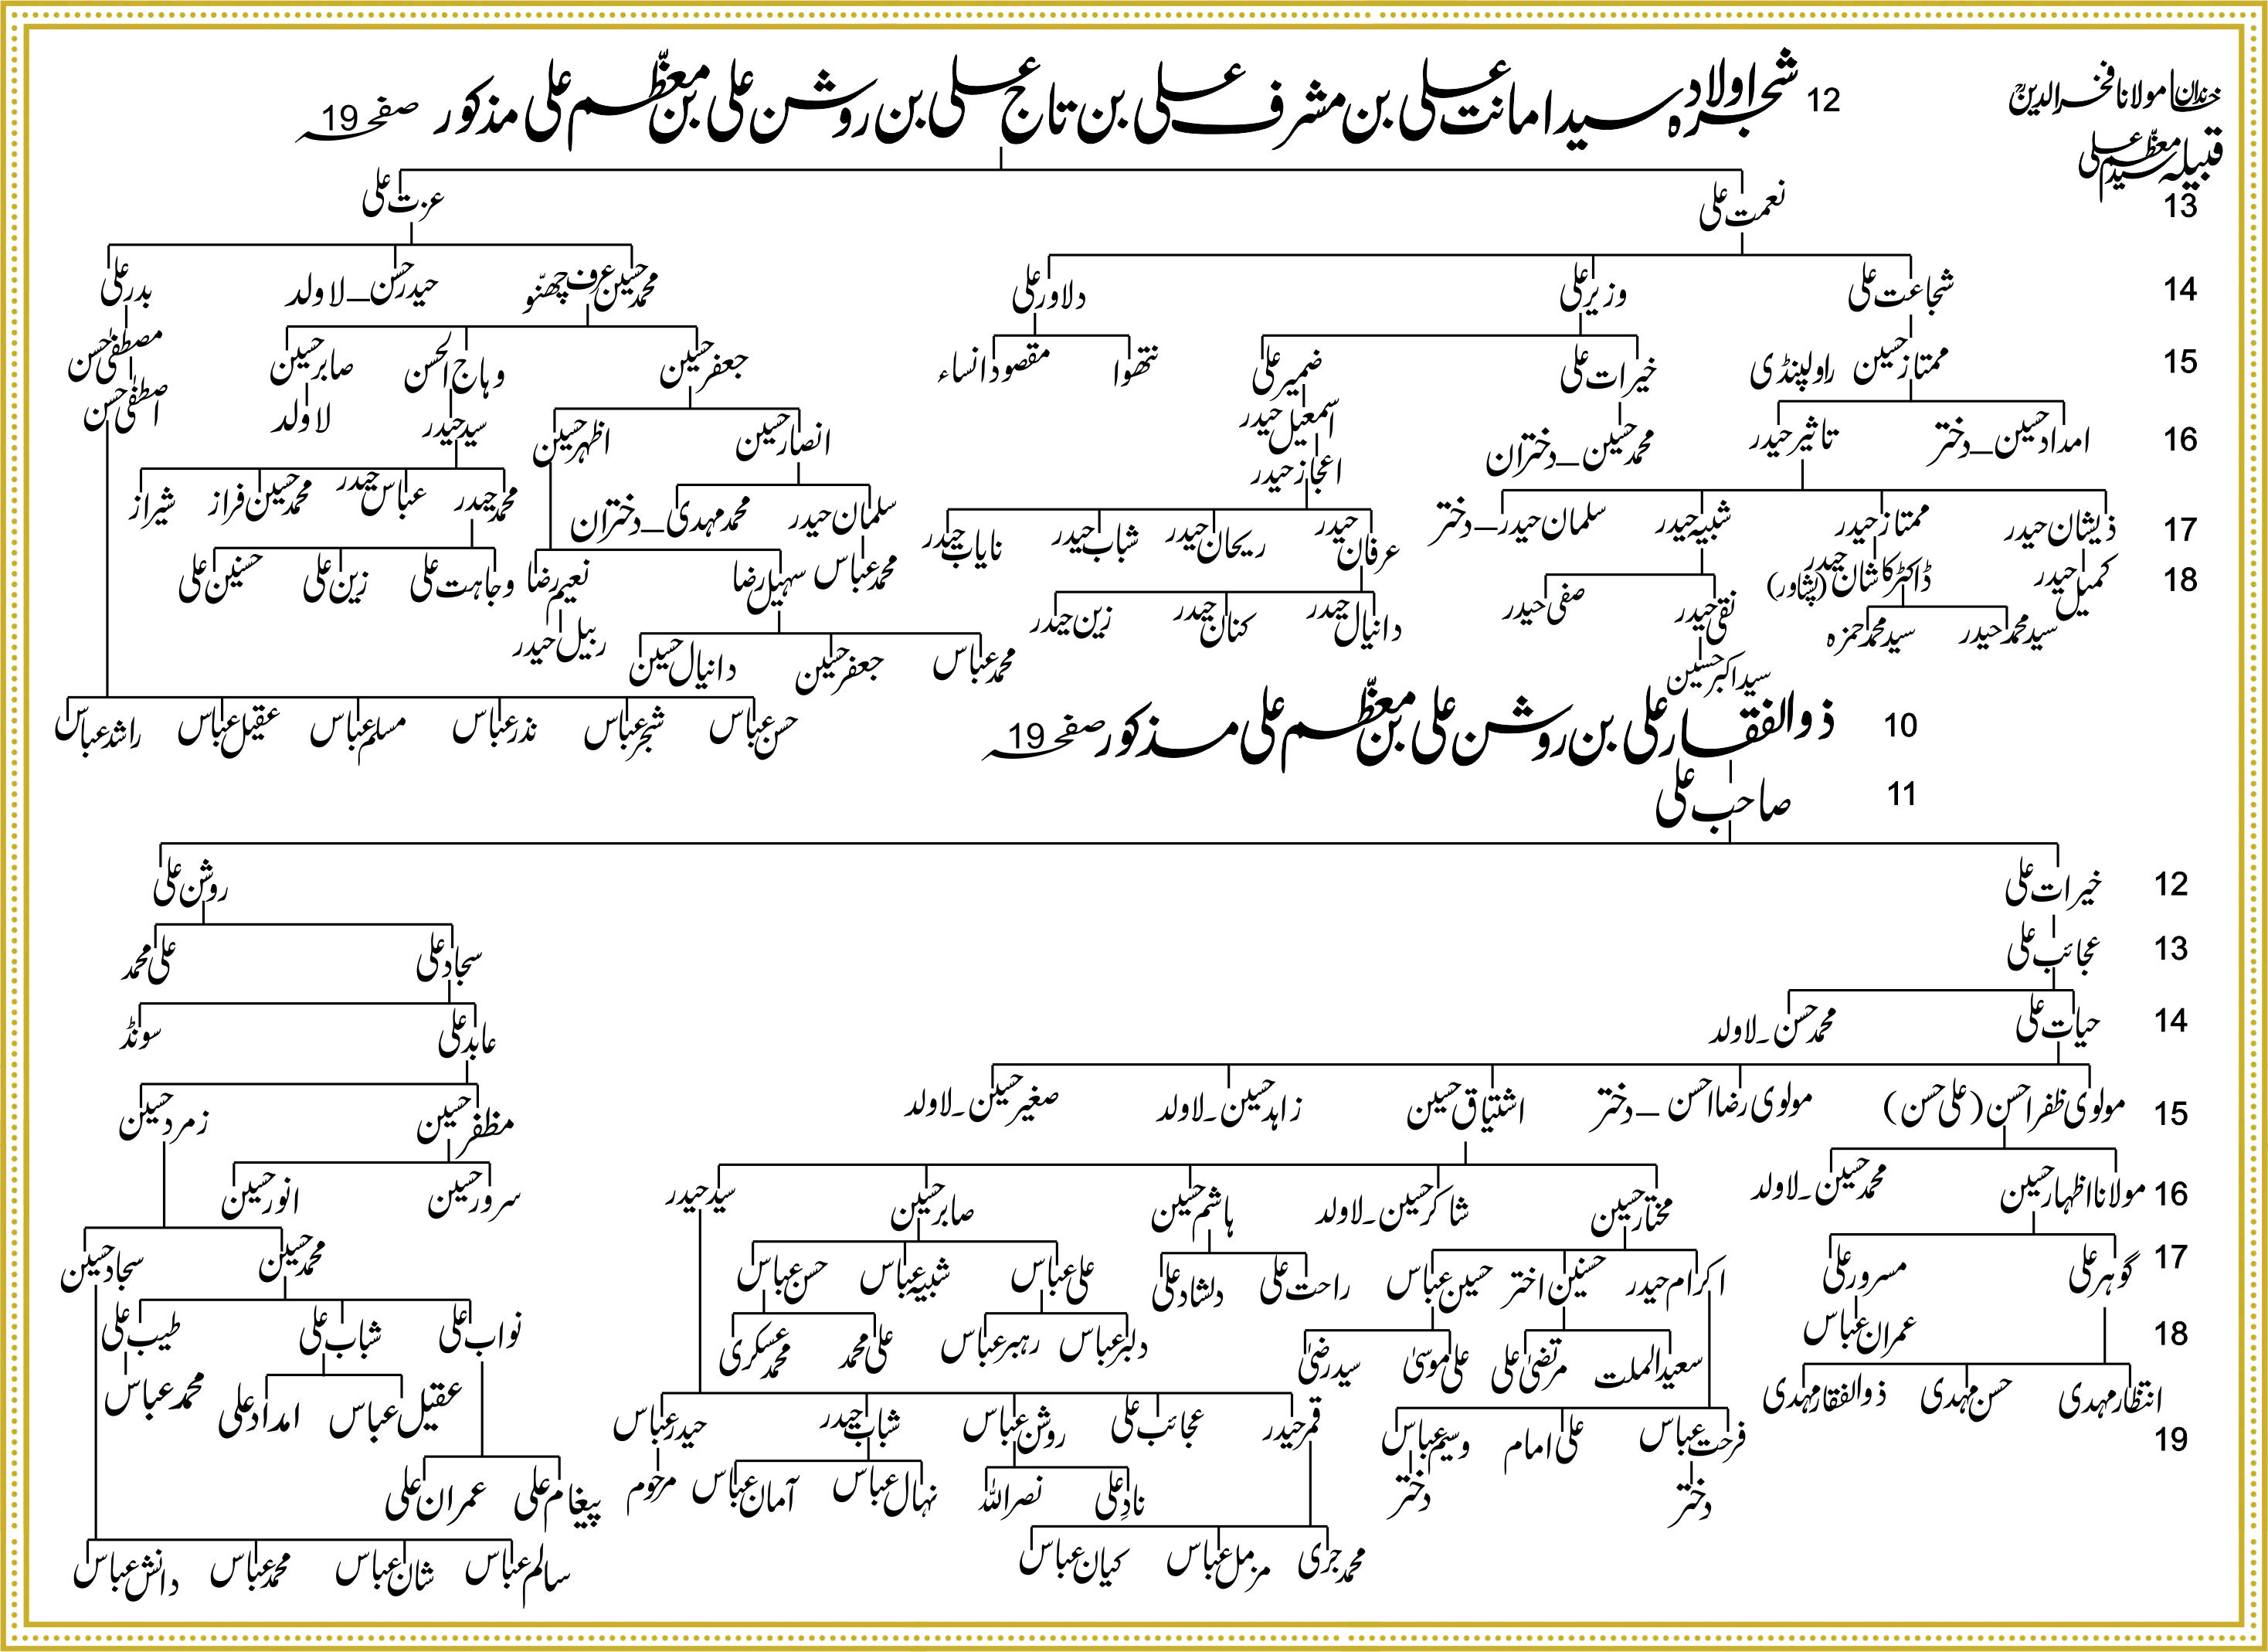 خاندان مولانا فخرالدینؒ
قبیلہ سید معظّم علی
12 شجرہ اولاد سید امانت علی بن مشرف علی بن تاج علی بن روشن علی بن معظّم علی مذکور صفحہ 19
13 نعمت علی عزت علی
14 شجاعت علی وزیر علی دلاور علی محمد حسین عرف چھنّو حیدر حسن – لاولد بدر علی
15 ممتاز حسین راولپنڈی خیرات علی ضمیر علی نتھوا مقصود انساء جعفر حسین وہاج الحسن صابر حسین مصطفٰی حسن
اسمعیل حیدر سید حیدر لاولد اصطفٰی حسن
16 امداد حسین – دختر تاثیر حیدر محمد حسین – دختران اعجاز حیدر انصار حسین اظہر حسین
محمد حیدر عباس حیدر محمد حسین فراز شیراز
17 ذیشان حیدر ممتاز حیدر شبیہ حیدر سلمان حیدر – دختر عرفان حیدر ریحان حیدر شباب حیدر نایاب حیدر سلمان حیدر محمد مہدی – دختران
18 کمیل حیدر ڈاکٹر کاشان حیدر (پشاور) نقی حیدر صفی حیدر دانیال حیدر کنان حیدر زین حیدر محمد عباس سہیل رضا نعیم رضا وجاہت علی زین علی حسنین علی
سید محمد حیدر سید محمد حمزہ سید اکبر حسین محمد عباس جعفر حسین دانیال حسین ربیل حیدر
حسن عباس شجر عباس نذر عباس مسلم عباس عقیل عباس راشد عباس
10 ذوالفقار علی بن روشن علی بن معظّم علی مذکور صفحہ 19
11 صاحب علی
12 خیرات علی روشن علی
13 عجائب علی سجاد علی علی محمد
14 حیات علی محمد حسن ۔ لاولد عابد علی سونڈ
15 مولوی ظفر احسن (علی حسن) مولوی رضا احسن – دختر اشتیاق حسین زاہد حسین ۔ لاولد صغیر حسین ۔ لاولد مظفر حسین زمرد حسین
16 مولانا اظہار حسین محمد حسین ۔ لاولد مختار حسین شاکر حسین ۔ لاولد ہاشم حسین صابر حسین سید حیدر سرور حسین انور حسین
17 گوہر علی مسرور علی اکرام حیدر حسنین اختر حسین عباس راحت علی دلشاد علی علی عباس شبیہ عباس حسن عباس محمد حسین سجاد حسین
18 عمران عباس سعید الملت مرتضیٰ علی علی موسیٰ سید رضیٰ دلبر عباس رہبر عباس علی محمد محمد عسکری نواب علی شباب علی طیب علی
انتظار مہدی حسن مہدی ذوالفقار مہدی عقیل عباس امداد علی محمد عباس
19 فرحت عباس علی امام وسیم عباس قمر حیدر عجائب علی روشن عباس شباب حیدر حیدر عباس
دختر دختر ناد علی نصر اللہ نہال عباس آمان عباس مرحوم پیغام علی عمران علی
محمد جری مزمل عباس کیان عباس سالم عباس شان عباس محمد عباس دانش عباس